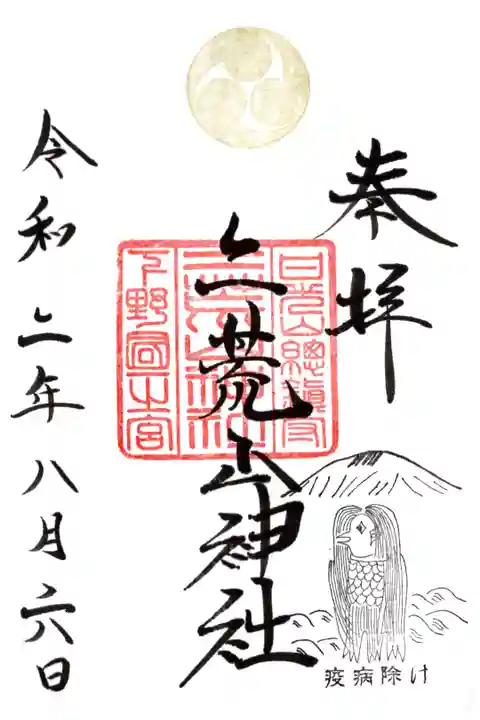 奉拝
日光山總鎮守
二荒山神社
下野國一之宮
二荒山神社
令和二年八月六日
疫病除け